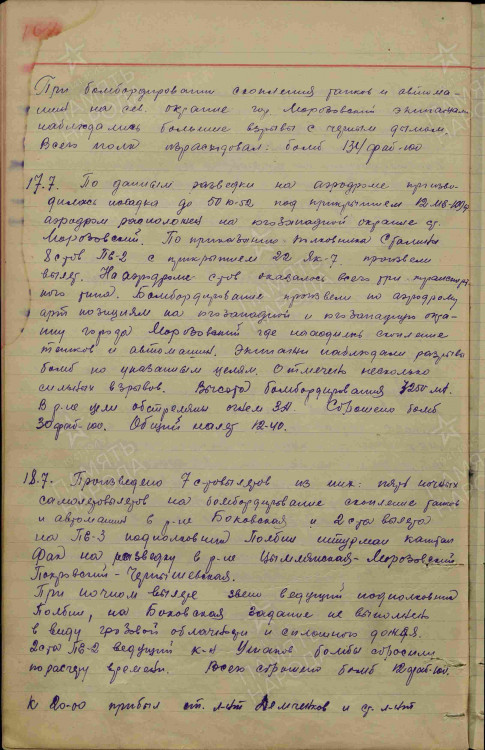 При бомбардировании скопления танков и автома-
шин на сев. окраине гор Морозовский экипажами
наблюдались большие взрывы с черным дымом.
Всего полк израсходовал: бомб 134 фаб-100
17.7. По данным разведки на аэродроме произво-
дилась посадка до 50 Ю-52 под прикрытием 12 МЕ-109ф
аэродром расположен на югозападной окраине г.
Морозовский. По приказанию полковника Сталина
8 стов ПЕ-2 с прикрытием 22 Як-7 произвели
вылет. На аэродроме с тов оказалось всего три транспорт
ного типа. Бомбардирование произвели по аэродрому,
арт позициям на югозападной и югозападную окра-
ину города Морозовский где находились скопление
танков и автомашин. Экипажи наблюдали разрывы
бомб по указанным целям. Отмечено несколько
сильных взрывов. Высота бомбардирования 7250 мт.
В р-не цели обстреляны огнем ЗА Сброшено бомб
30 фаб-100. Общий налет 12-40.
18.7. Произведено 7 с/вылетов из них: пять ночных
самолетовылетов на бомбардирование скопление танков
и автомашин в р-не Боковская и 2 с/та вылета
на ПЕ-3 подполковника Полбин штурман капитан
Фак на разведку в р-не Цымлянская-Морозовский
Покровский-Чернышевская.
При ночном вылете звено ведущий подполковник
Полбин, на Боковская задание не выполнено
в виду грозовой облачности и сплошного дождя.
2 с/та ПЕ-2 ведущий к-н Ушаков бомбы сбросили
по расчету времени. Всего сброшено бомб 12 фаб-100.
К 20-00 прибыл ст. л-нт Демченков и ст. л-нт